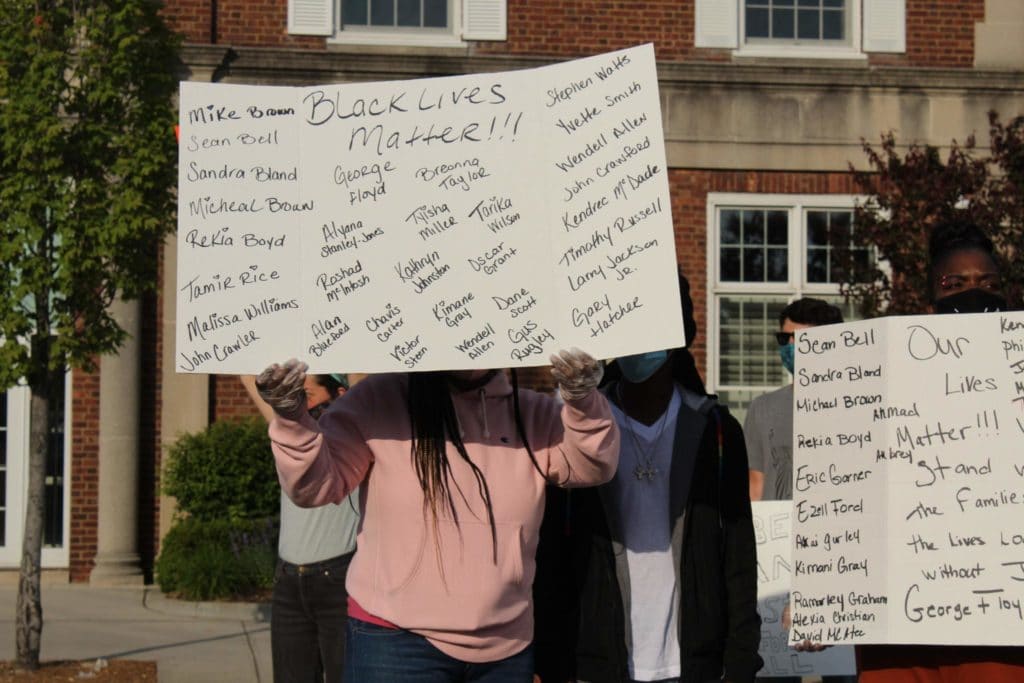 Black Lives
Matter!!!
Mike Brown
Sean Bell
Sandra Bland
Micheal Brown
Rekia Boyd
Tamir Rice
Malissa Williams
John Crawler
George
Floyd
Breonna
Taylor
Aiyana
Stanley-Jones
Tyisha
Miller
Tarika
Wilson
Rashad
McIntosh
Kathryn
Johnston
Oscar
Grant
Alan
Blueford
Chavis
Carter
Kimane
Gray
Dane
Scott
Victor
Steen
Wendell
Allen
Gus
Rugley
Stephon Watts
Yvette Smith
Wendell Allen
John Crawford
Kendrec McDade
Timothy Russell
Larry Jackson
Jr.
Gary
Hatcher
Sean Bell
Sandra Bland
Michael Brown
Rekia Boyd
Eric Garner
Ezell Ford
Akai gurley
Kimani Gray
Ramarley Graham
Alexia Christian
David McAtee
Our
Lives
Ahmad
Matter!!!
Arbrey
Stand
the Families
the Lives
without
George Floy